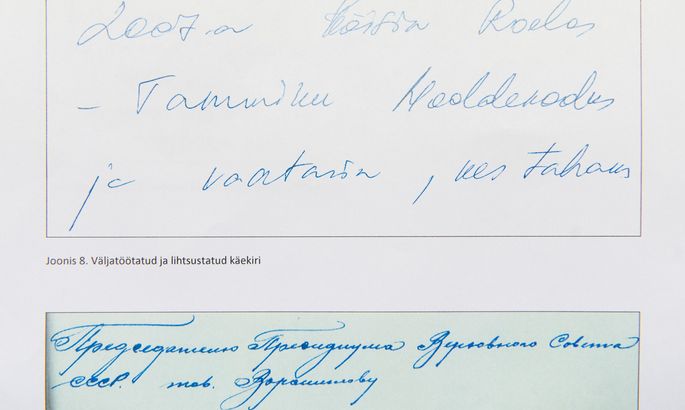 2007.a käisin Roelas
– Tammiku Hooldekodus
ja vaatasin, kes tahaks
Joonis 8. Väljatöötatud ja lihtsustatud käekiri
Председателю Президиума Верховного Совета
СССР. тов. Ворошилову